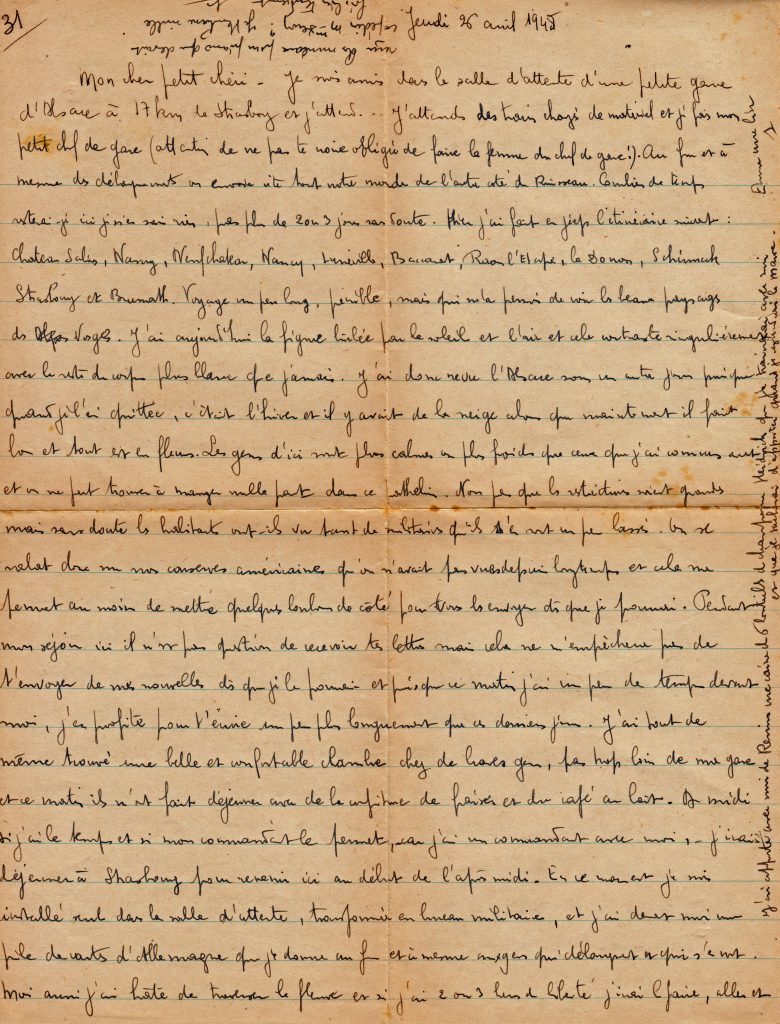 31
Jeudi 26 avril 1945
Mon cher petit chéri - Je suis assis dans la salle d'attente d'une petite gare
d'Alsace à 17 km de Strasbourg et j'attend... J'attends des trains chargés de matériel et je fais mon
petit chef de gare (attention de ne pas te voir obligée de faire la femme du chef de gare!). Au fur et à
mesure des débarquements on envoie vite tout notre monde de l'autre côté du Ruisseau. Combien de temps
resterai-je ici je n'en sais rien, pas plus de 2 ou 3 jours sans doute. Hier j'ai fait en jeep l'itinéraire suivant :
Chateau Salins, Nancy, Neufchateau, Nancy, Lunéville, Baccarat, Raon l'Etape, le Donon, Schirmeck
Strasbourg et Brumath. Voyage un peu long, pénible, mais qui m'a permis de voir les beaux paysages
des Vosges. J'ai aujourd'hui la figure brûlée par le soleil et l'air et cela contraste singulièrement
avec le reste du corps plus blanc que jamais. J'ai donc revu l'Alsace sous un autre jour puisque
quand je l'ai quittée, c'était l'hiver et il y avait de la neige alors que maintenant il fait
bon et tout est en fleurs. Les gens d'ici sont plus calmes ou plus froids que ceux que j'ai connus avant
et on ne peut trouver à manger nulle part dans ce patelin. Non pas que les restrictions soient grandes
mais sans doute les habitants ont-ils vu tant de militaires qu'ils s'en sont un peu lassés. On se
rabat donc sur nos conserves américaines qu'on n'avait pas vues depuis longtemps et cela me
permet au moins de mettre quelques bonbons de côté pour vous les envoyer dès que je pourrai. Pendant
mon séjour ici il n'est pas question de recevoir tes lettres mais cela ne m'empêchera pas de
t'envoyer de mes nouvelles dès que je le pourrai et puisque ce matin j'ai un peu de temps devant
moi, j'en profite pour t'écrire un peu plus longuement que ces derniers jours. J'ai tout de
même trouvé une belle et confortable chambre chez de braves gens, pas trop loin de ma gare
et ce matin ils m'ont fait déjeuner avec de la confiture de fraises et du café au lait. A midi
si j'ai le temps et si mon commandant le permet, car j'ai un commandant avec moi, - j'irai
déjeuner à Strasbourg pour revenir ici au début de l'après midi. En ce moment je suis
installé seul dans la salle d'attente, transformée en bureau militaire, et j'ai devant moi une
pile de cartes d'Allemagne que je donne au fur et à mesure aux gens qui débarquent et qui s'en vont.
Moi aussi j'ai hâte de traverser le fleuve et si j'ai 2 ou 3 heures de liberté j'irai le faire, aller et
J'ai apporté avec moi de Reims une caisse de 6 bouteilles de champagne que je trainerai avec moi